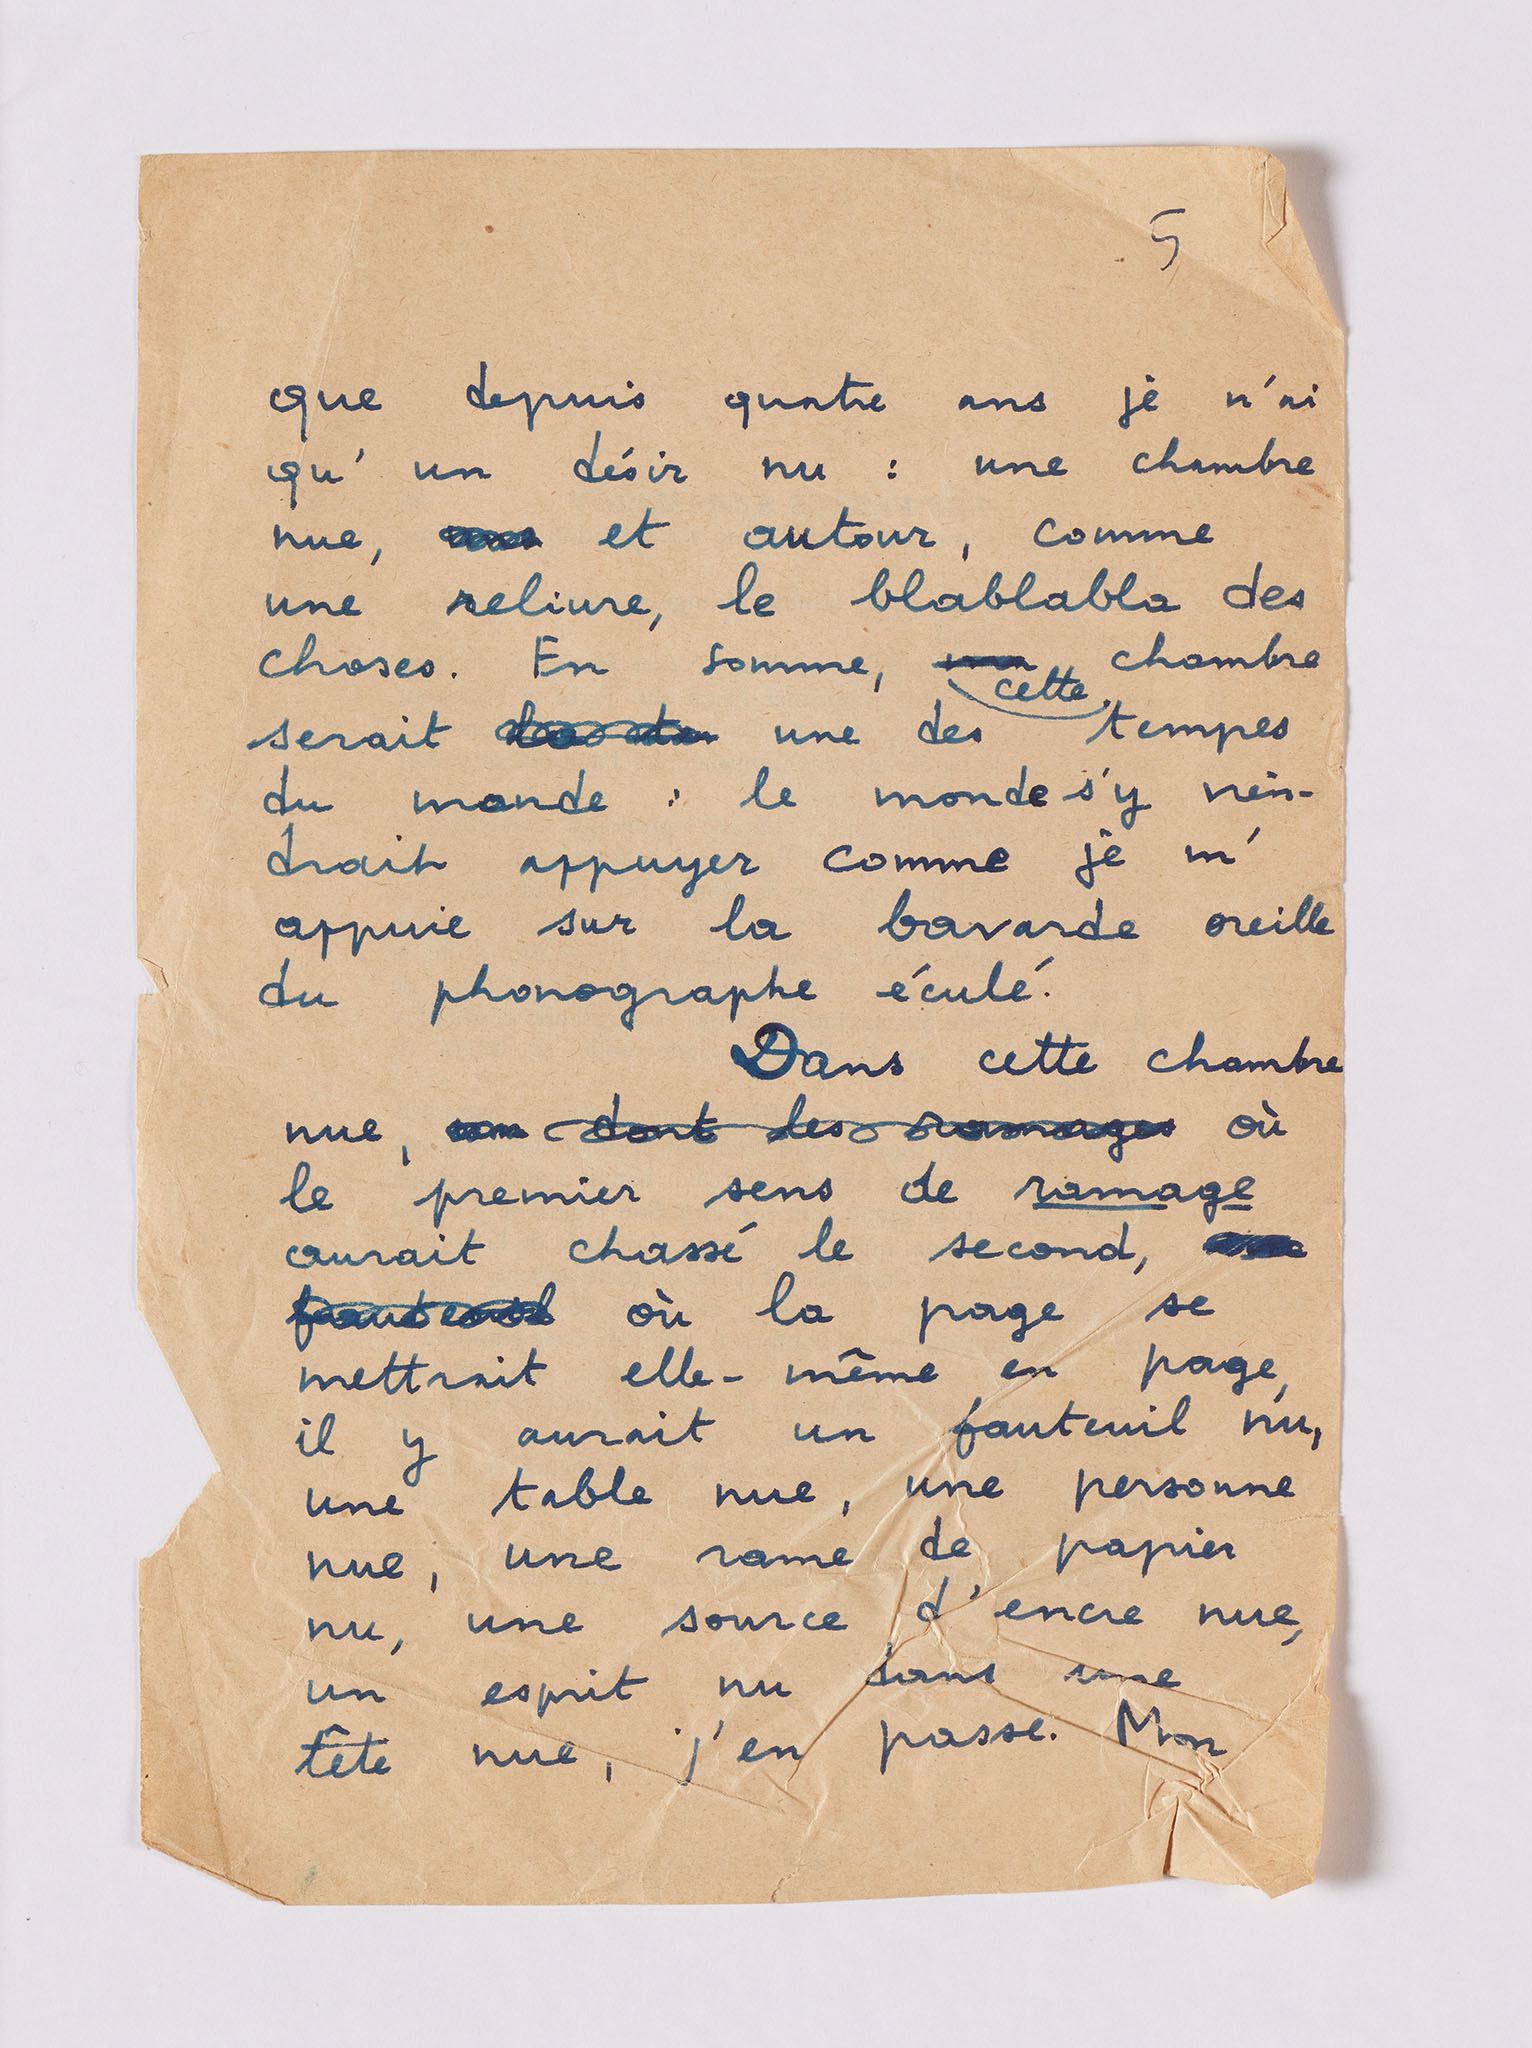 5
que depuis quatre ans je n'ai
qu'un désir nu : une chambre
nue, et autour, comme
une reliure, le blablabla des
choses. En somme, cette chambre
serait une des tempes
du monde : le monde s'y vien-
drait appuyer comme je m'
appuie sur la bavarde oreille
du phonographe éculé.
Dans cette chambre
nue, dont les ramages où
le premier sens de ramage
aurait chassé le second,
fauteuil où la page se
mettrait elle-même en page,
il y aurait un fauteuil nu,
une table nue, une personne
nue, une rame de papier
nu, une source d'encre nue,
un esprit nu dans une
tête nue, j'en passe. Mon